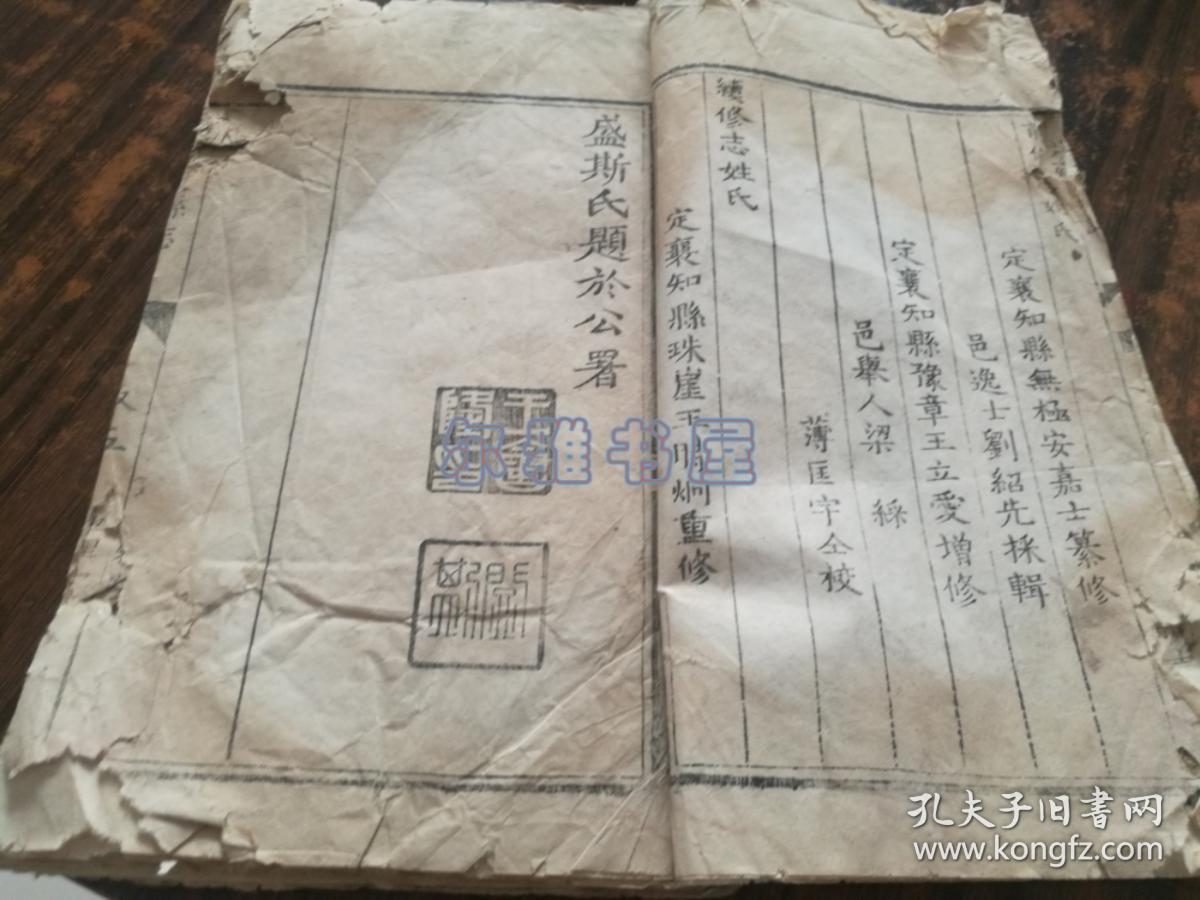 定襄知縣無極安嘉士纂修
邑逸士劉紹先採輯
定襄知縣豫章王立愛增修
邑舉人梁 綵
薄匡宇仝校
續修志姓氏
定襄知縣珠崖王時炯重修
盛斯氏題於公署
尔雅书屋
孔夫子旧书网
www.kongfz.com